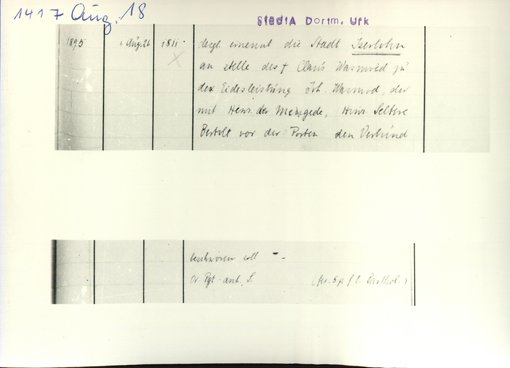 1417 Aug. 18
StadtA Dortm. Urk
1895 Aug. 26 1811 legt ernennt die Stadt Iserlohn
an Stelle des † Claus Warmod zu
der Eidesleistung Joh. Warmod, der
mit Henr. der Mengede, Hinr
Bertolt vor der Porten den Verbund
beschwören soll
Or. Pgt. anh. S.